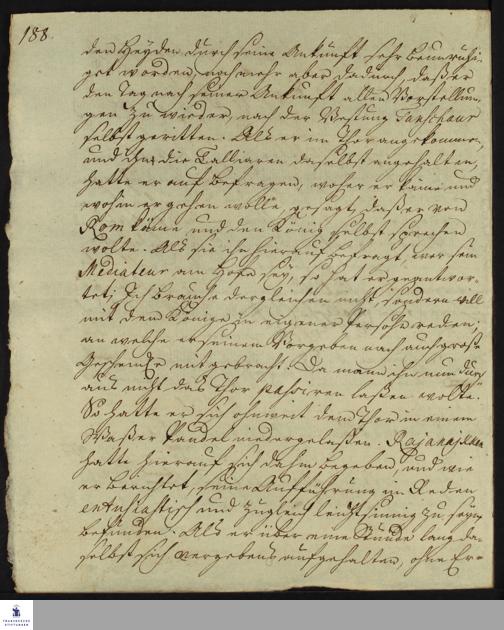 188.
den Heyden durch seine Ankunft sehr beunruhi-
get worden, noch mehr aber dadurch, daß er
den Tag nach seiner Ankunft allen Vorstellun-
gen zu wieder, nach der Vestung Tanschaur
selbst geritten. Als er im Thor angekommen,
und ihn die Talliaren daselbst angehalten,
hatte er auf Befragen, woher er käme und
wohin er gehen wolle, gesagt, daß er von
Rom käme, und den König selbst sprechen
wolte. Als sie ihn hierauf befragt, wer sein
Mediateur am Hofe sey, so hat er geantwor-
tet: Ich brauche dergleichen nicht, sondern will
mit dem Könige in eigener Persohn reden,
an welche er seinem Vorgeben nach auch große
Geschencke mitgebracht. Da mann ihn nun durch
aus nicht das Thor passiren laßen wolte,
So hatte er sich ohnweit dem Thor in einem
Waßer Pandel niedergelaßen. Rajanaicken
hatte hierauf sich dahin begeben, und wie
er berichtet, seine Aufführung im Reden
entusiastisch und zugleich leichtsinnig zu seyn
befunden. Als er über eine Stunde lang da-
selbst sich vergebens aufgehalten, ohne Er-
FRANCKESCHE
STIFTUNGEN